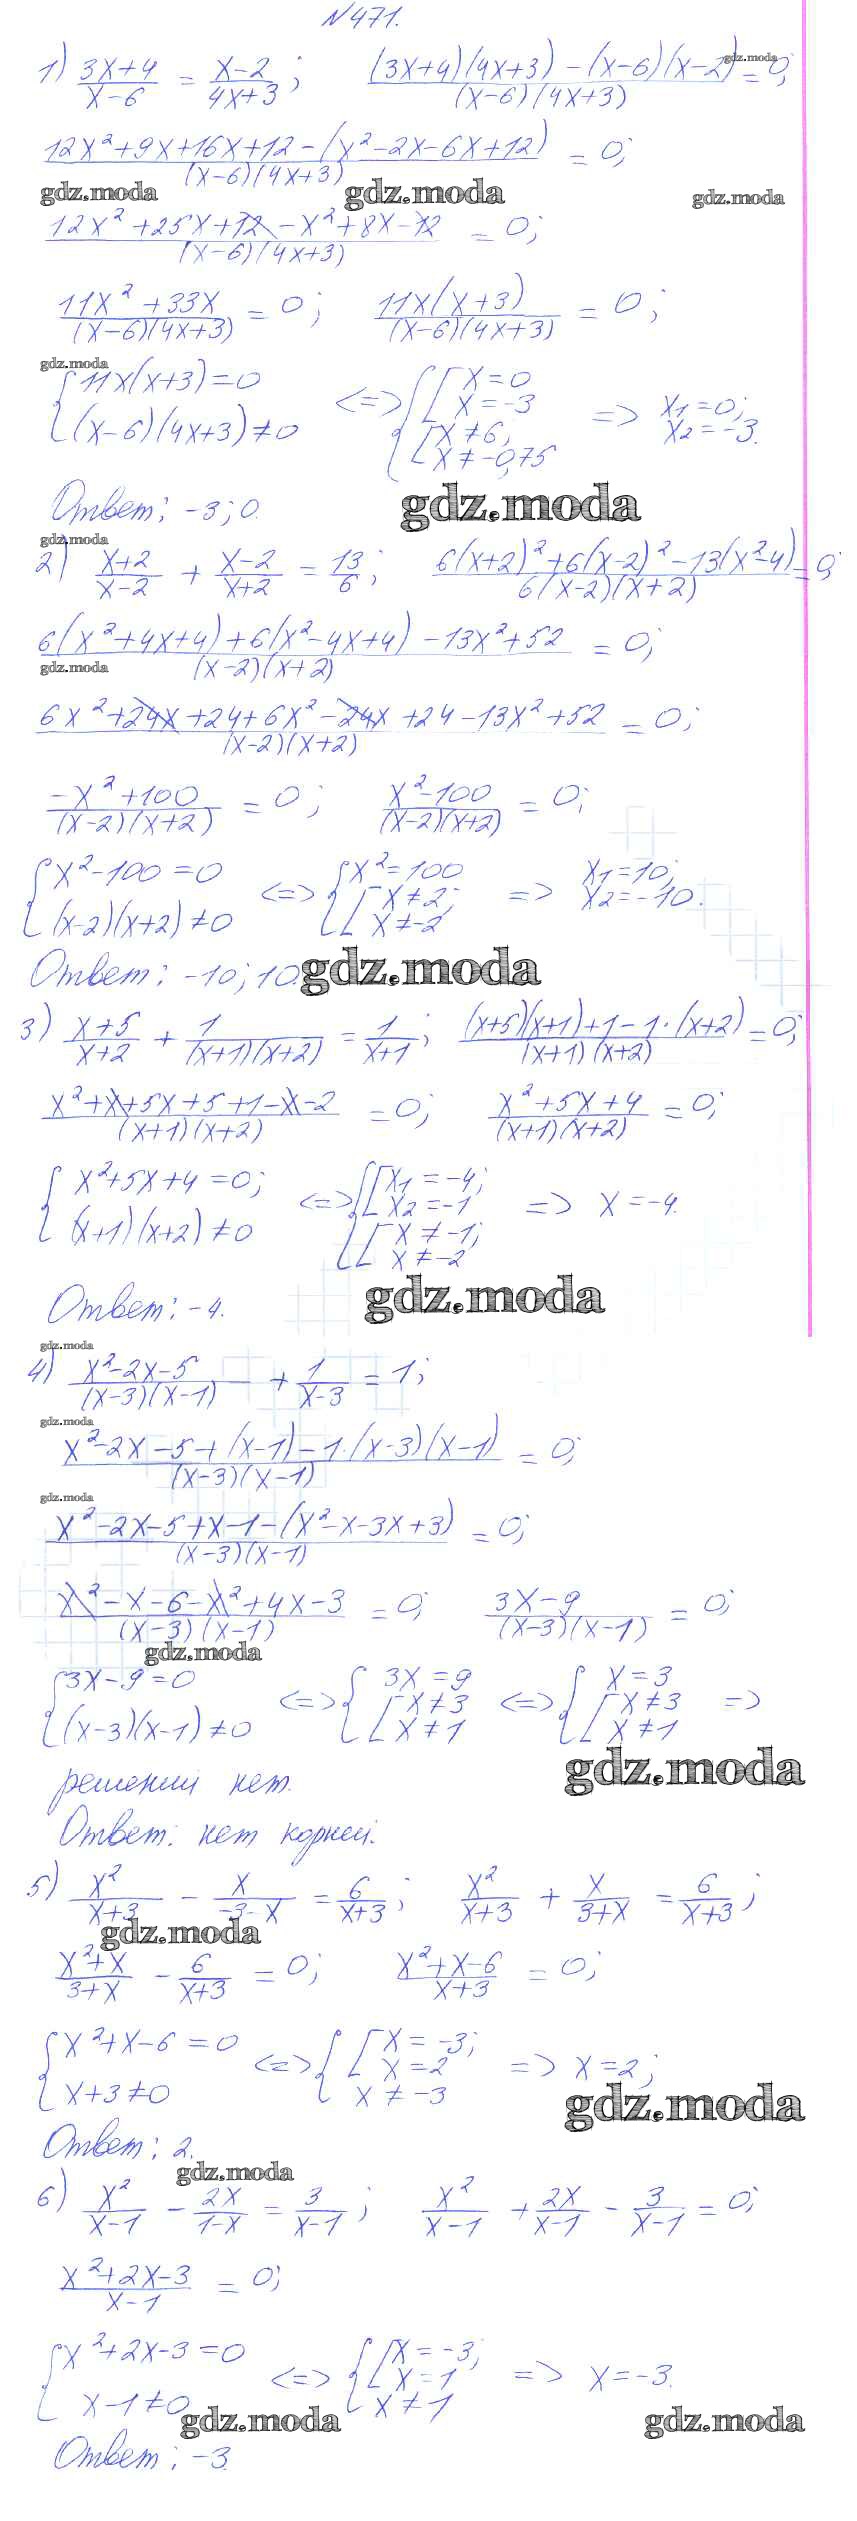 N471.
1) (3x+4)/(x-6) = (x-2)/(4x+3); ((3x+4)(4x+3)-(x-6)(x-2))/((x-6)(4x+3)) = 0;
gdz.moda
(12x²+9x+16x+12-(x²-2x-6x+12))/((x-6)(4x+3)) = 0;
gdz.moda gdz.moda gdz.moda
(12x²+25x+12-x²+8x-12)/((x-6)(4x+3)) = 0;
(11x²+33x)/((x-6)(4x+3)) = 0; (11x(x+3))/((x-6)(4x+3)) = 0;
gdz.moda
{11x(x+3)=0 (x-6)(4x+3)≠0 <=> {[x=0 x=-3 [x≠6; x≠-0,75 => x₁=0; x₂=-3.
Ответ: -3; 0. gdz.moda
gdz.moda
2) (x+2)/(x-2) + (x-2)/(x+2) = 13/6; (6(x+2)²+6(x-2)²-13(x²-4))/(6(x-2)(x+2)) = 0;
(6(x²+4x+4)+6(x²-4x+4)-13x²+52)/((x-2)(x+2)) = 0;
gdz.moda
(6x²+24x+24+6x²-24x+24-13x²+52)/((x-2)(x+2)) = 0;
(-x²+100)/((x-2)(x+2)) = 0; (x²-100)/((x-2)(x+2)) = 0;
{x²-100=0 (x-2)(x+2)≠0 <=> {x²=100 [x≠2; x≠-2 => x₁=10; x₂=-10.
Ответ: -10; 10. gdz.moda
3) (x+5)/(x+2) + 1/((x+1)(x+2)) = 1/(x+1); ((x+5)(x+1)+1-1·(x+2))/((x+1)(x+2)) = 0;
(x²+x+5x+5+1-x-2)/((x+1)(x+2)) = 0; (x²+5x+4)/((x+1)(x+2)) = 0;
{x²+5x+4=0; (x+1)(x+2)≠0 <=> {[x₁=-4; x₂=-1 [x≠-1; x≠-2 => x=-4.
Ответ: -4. gdz.moda
gdz.moda
4) (x²-2x-5)/((x-3)(x-1)) + 1/(x-3) = 1;
gdz.moda
(x²-2x-5+(x-1)-1·(x-3)(x-1))/((x-3)(x-1)) = 0;
gdz.moda
(x²-2x-5+x-1-(x²-x-3x+3))/((x-3)(x-1)) = 0;
(x²-x-6-x²+4x-3)/((x-3)(x-1)) = 0; (3x-9)/((x-3)(x-1)) = 0;
gdz.moda
{3x-9=0 (x-3)(x-1)≠0 <=> {3x=9 [x≠3 x≠1 <=> {x=3 [x≠3 x≠1 =>
gdz.moda
решений нет.
Ответ: нет корней.
5) x²/(x+3) - x/(-3-x) = 6/(x+3); x²/(x+3) + x/(3+x) = 6/(x+3);
gdz.moda
(x²+x)/(3+x) - 6/(x+3) = 0; (x²+x-6)/(x+3) = 0;
{x²+x-6=0 x+3≠0 <=> {[x=-3; x=2 x≠-3 => x=2;
gdz.moda
Ответ: 2.
gdz.moda
6) x²/(x-1) - 2x/(1-x) = 3/(x-1); x²/(x-1) + 2x/(x-1) - 3/(x-1) = 0;
(x²+2x-3)/(x-1) = 0;
{x²+2x-3=0 x-1≠0 <=> {[x=-3; x=1 x≠1 => x=-3.
gdz.moda gdz.moda
Ответ: -3.